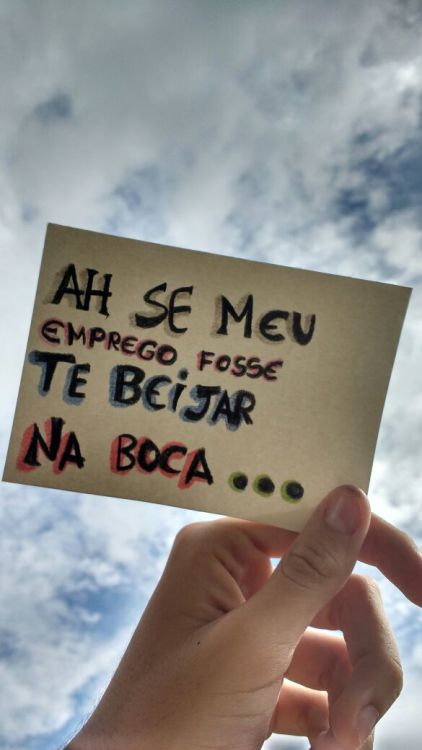 AH SE MEU
EMPREGO FOSSE
TE BEiJAR
NA BOCA...